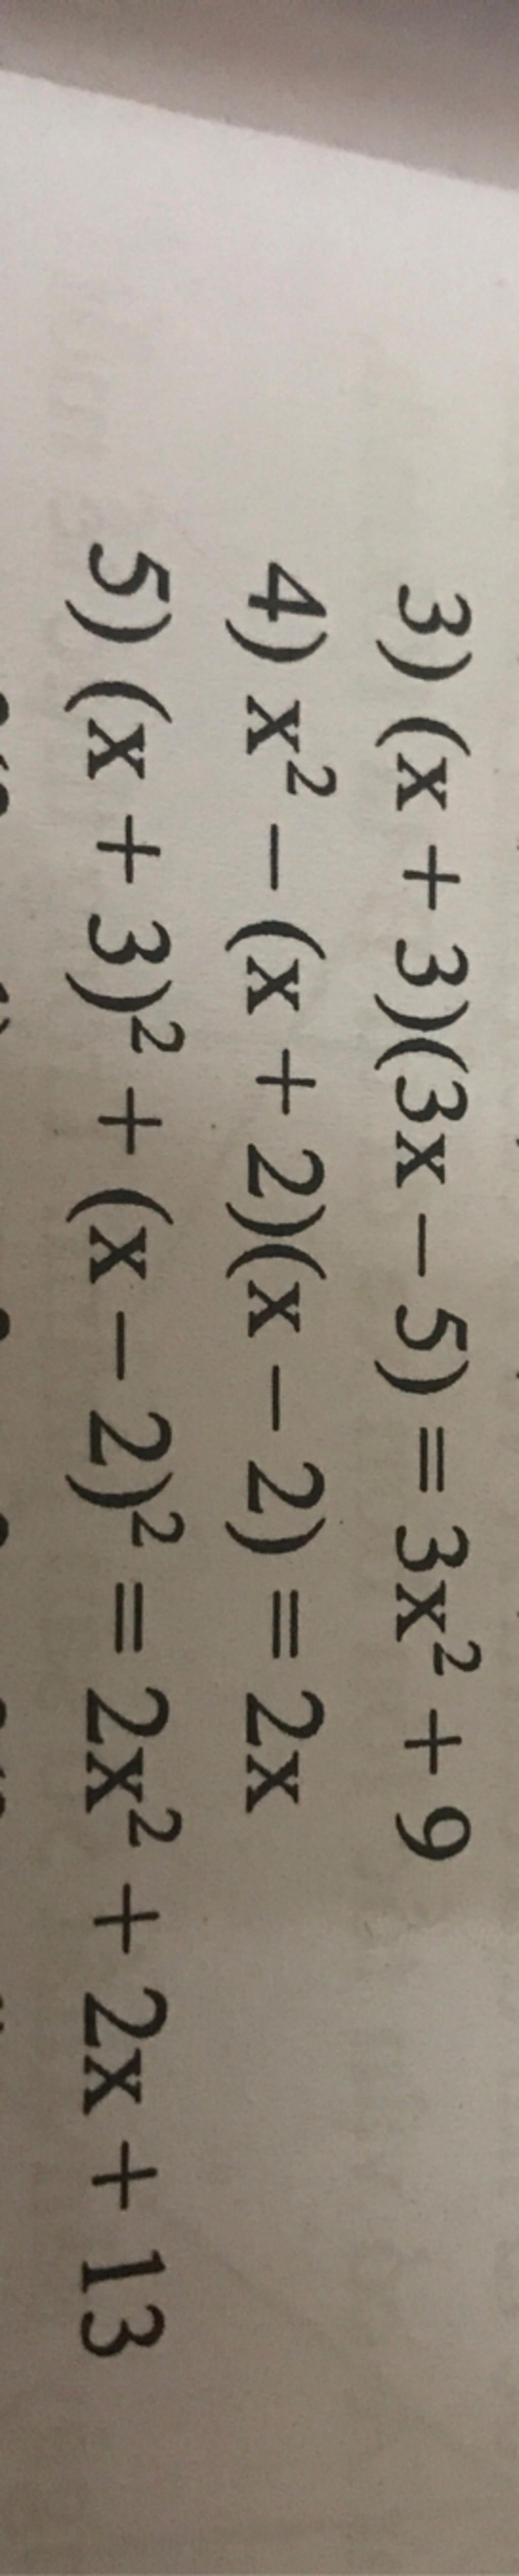 3) (x + 3)(3x – 5) = 3x² + 9
4) x² – (x + 2)(x – 2) = 2x
5) (x + 3)² + (x – 2)² = 2x² + 2x + 13